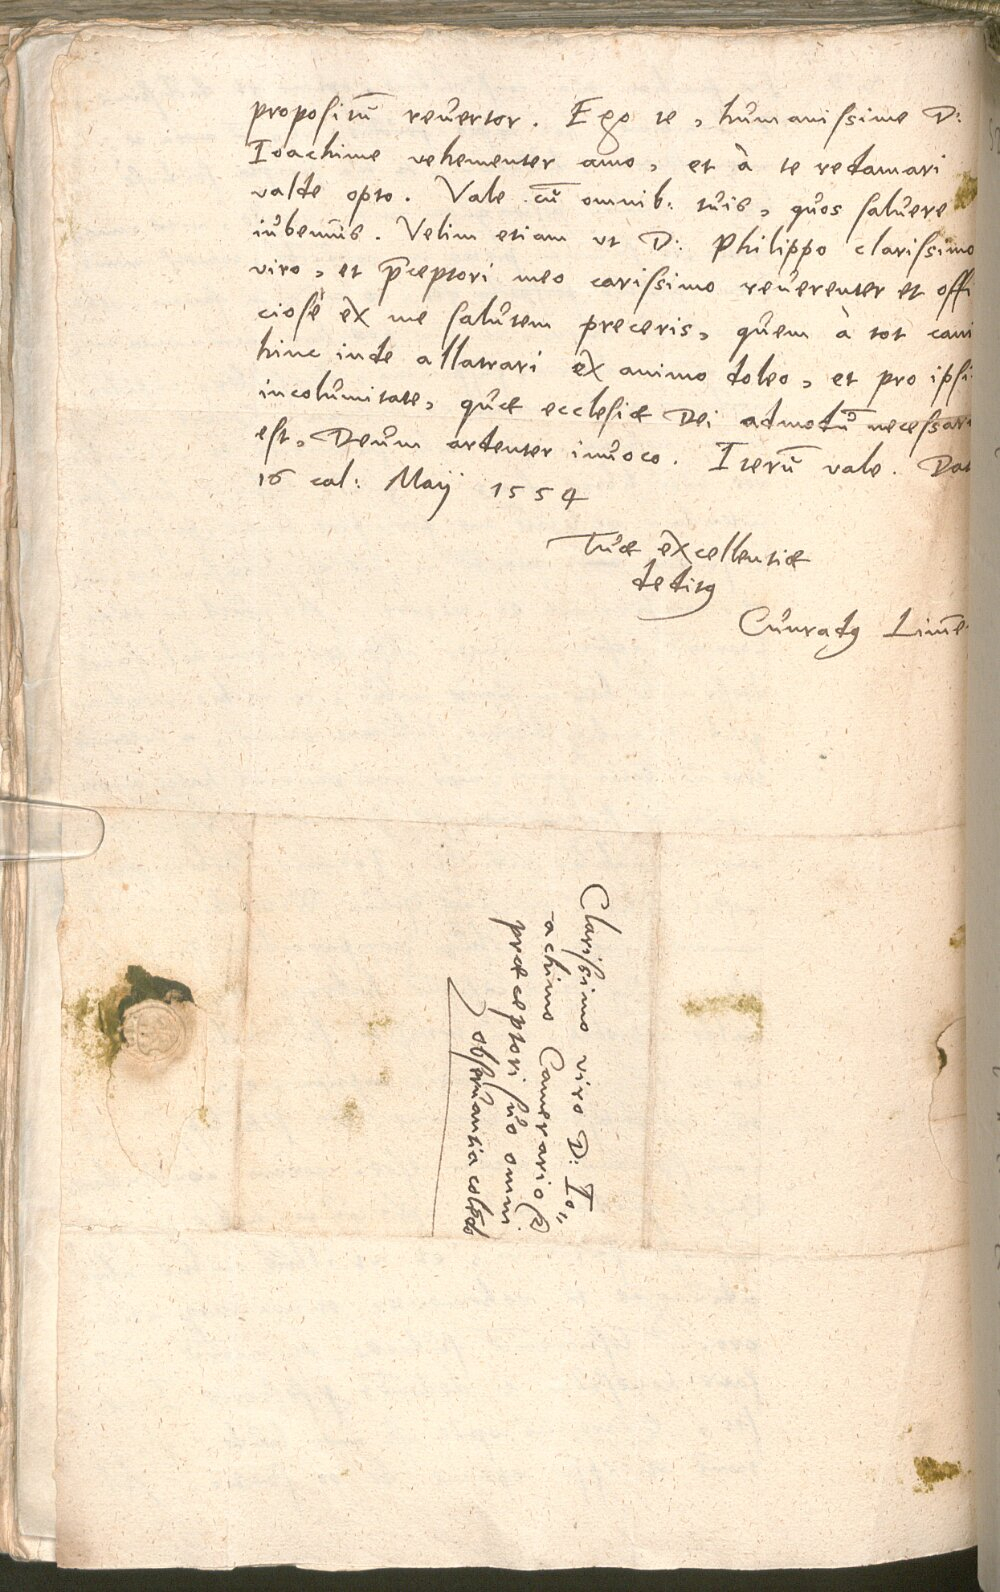 propositū reuertor. Ego te, humanissime D:
Ioachime vehementer amo, et à te redamari
valde opto. Vale cū omnib: tuis, quos saluere
iubemus. Velim etiam vt D: Philippo clarissimo
viro, et p̄ceptori meo carissimo reuerenter et offi
ciose ex me salutem preceris, quem à tot cani
hinc inde allatrari ex animo doleo, et pro ipsi
incolumitate, quæ ecclesiæ Dei admodū necessari
est, Deum ardenter inuoco. Iterū vale. Dat
16 cal: Maij 1554
Tuæ excellentiæ
deditꝰ
Cunradꝰ
Clarissimo viro D: Io„
achimo Camerario
præceptori suo omni
obseruantia